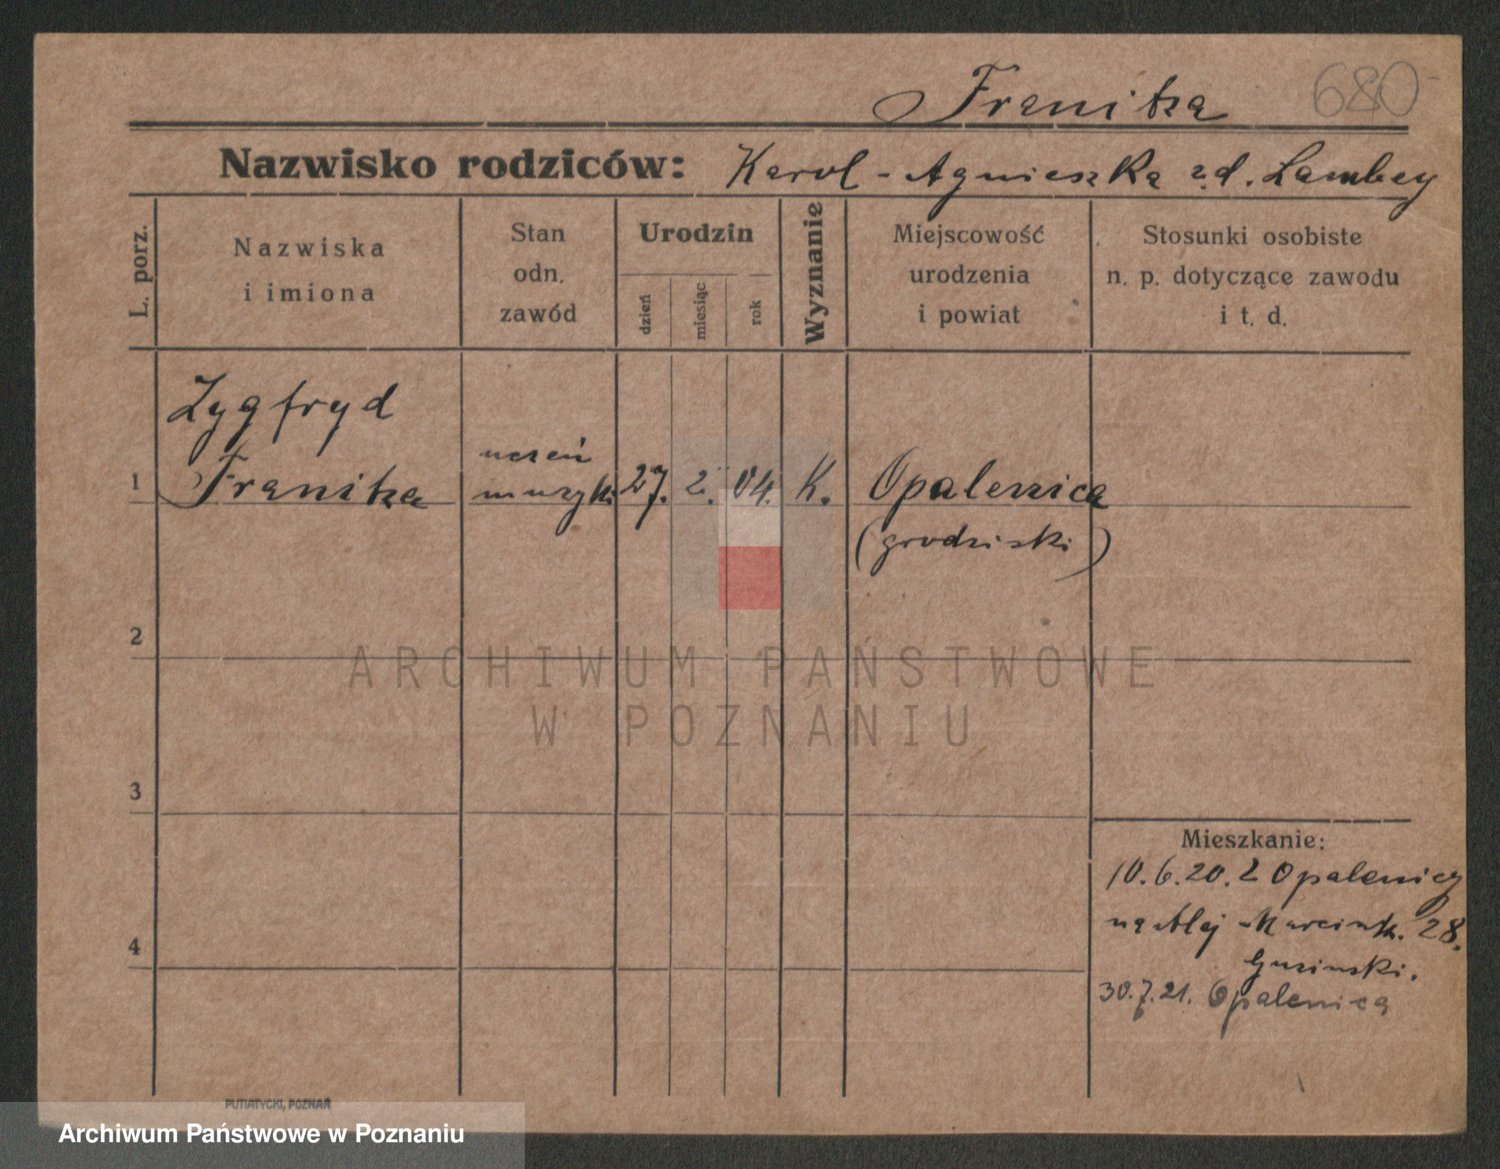 Franitza 680
Nazwisko rodziców: Karol - Agnieszka z.d. Lambey
L. porz.
Nazwiska
i imiona
Stan
odn.
zawód
Urodzin
dzień
miesiąc
rok
Wyznanie
Miejscowość
urodzenia
i powiat
Stosunki osobiste
n. p. dotyczące zawodu
i t. d.
Zygfryd
1 Franitza
uczeń
muzyk.
27. 2. 04. K. Opalenica
(grodziski)
2
3
4
Mieszkanie:
10.6.20. z Opalenicy
na Alej Marcink. 28.
30.7.21. Opalenica
ARCHIWUM PAŃSTWOWE
W POZNANIU
PUTIATYCKI, POZNAŃ
Archiwum Państwowe w Poznaniu